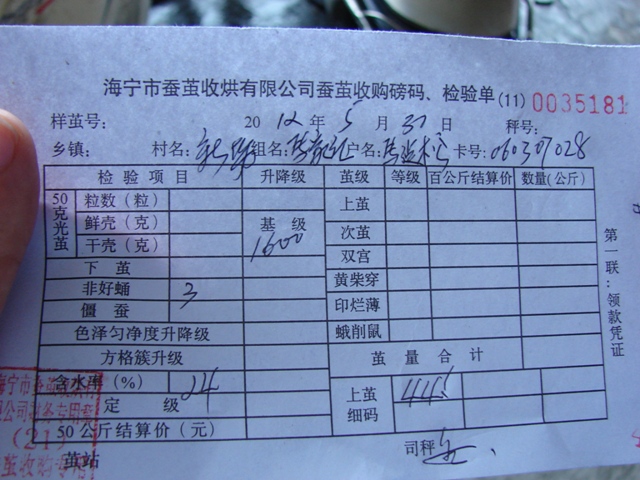 海宁市蚕茧收烘有限公司蚕茧收购磅码、检验单(11) 0035181
样茧号: 2012年5月31日 秤号:
乡镇: 村名: 组名: 户名: 卡号:060307028
检验项目 升降级 茧级 等级 百公斤结算价 数量(公斤)
50克光茧 粒数(粒) 上茧
鲜壳(克) 基级 次茧
干壳(克) 1600 双宫
下茧 黄柴穿
非好蛹 3 印烂薄
僵蚕 蛾削鼠
色泽匀净度升降级
方格簇升级 茧量合计
含水率(%) 14 上茧细码 445
定级
50公斤结算价(元)
茧站 司秤
第一联:领款凭证
海宁市蚕茧收烘
公司财务专用章
(21)
茧收购专用